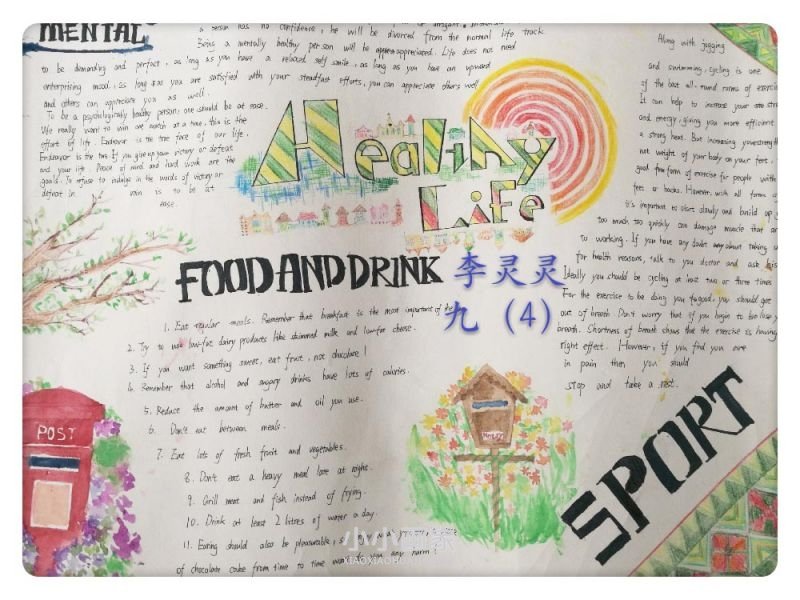 MENTAL
a person has no confidence, he will be divorced from the normal life track.
Being a mentally healthy person will be appreciated. Life does not need
to be demanding and perfect, as long as you have a relaxed self smile, as long as you have an upward
enterprising mood, as long as you are satisfied with your steadfast efforts, you can appreciate others well
and others can appreciate you as well.
To be a psychologically healthy person, one should be at ease.
We really want to win one match at a time, this is the
effort of life. Endeavor is the true face of our life.
Endeavor is the tree. If you give up your victory or defeat
and your life. Peace of mind and hard work are the
goals. To refuse to indulge in the words of victory or
defeat in vain is to be at
ease.
Healthy
Life
FOOD AND DRINK
李灵灵
九（4）
1. Eat regular meals. Remember that breakfast is the most important of the
2. Try to use low-fat dairy products like skimmed milk and low-fat cheese.
3. If you want something sweet, eat fruit, not chocolate!
4. Remember that alcohol and sugary drinks have lots of calories.
5. Reduce the amount of butter and oil you use.
6. Don't eat between meals.
7. Eat lots of fresh fruit and vegetables.
8. Don't eat a heavy meal late at night.
9. Grill meat and fish instead of frying.
10. Drink at least 2 litres of water a day.
11. Eating should also be pleasurable,
of chocolate cake from time to time won't do you any harm!
Along with jogging
and swimming, cycling is one
of the best all-round forms of exercise
It can help to increase your
and energy, giving you more efficient
a strong heart. But increasing your strength
not weight of your body on your feet,
good form of exercise for people with
feet or backs. However, with all forms of
it's important to start slowly and build up
too much too quickly can damage muscle that are
to working. If you have any doubt about taking up
for health reasons, talk to you doctor and ask his
Ideally you should be cycling at least two or three times
For the exercise to be doing you to good, you should get
out of breath. Don't worry that if you begin to lose your
breath. Shortness of breath shows that the exercise is having
right effect. However, if you find you are
in pain then you should
stop and take a rest.
POST
SPORT